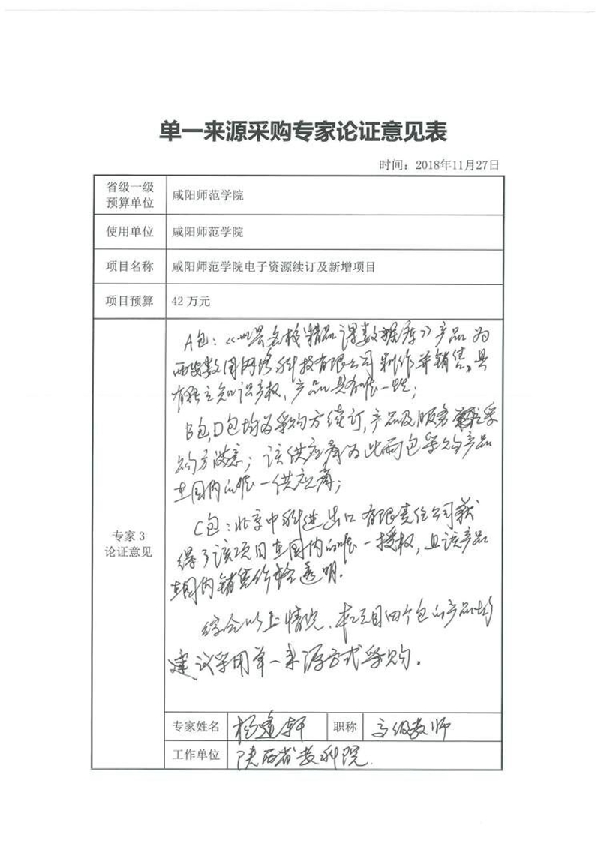 单一来源采购专家论证意见表
时间：2018年11月27日
省级一级
预算单位
咸阳师范学院
使用单位
咸阳师范学院
项目名称
咸阳师范学院电子资源续订及新增项目
项目预算
42万元
专家 3
论证意见
A包：《世界名校精品课数据库》产品为
西安数图网络科技有限公司制作并销售，具
有独立知识产权，产品具有唯一性；
B包，D包均为采购方续订，产品及服务 采
购方满意；该供应商为此两包采购产品
在国内的唯一供应商；
C包：北京中科进出口有限责任公司获
得了该项目在国内的唯一授权，且该产品
在国内销售价格透明.
综合以上情况，本项目四个包的产品均
建议采用单一来源方式采购。
专家姓名
杨 轩
职称
高级教师
工作单位
陕西省教科院